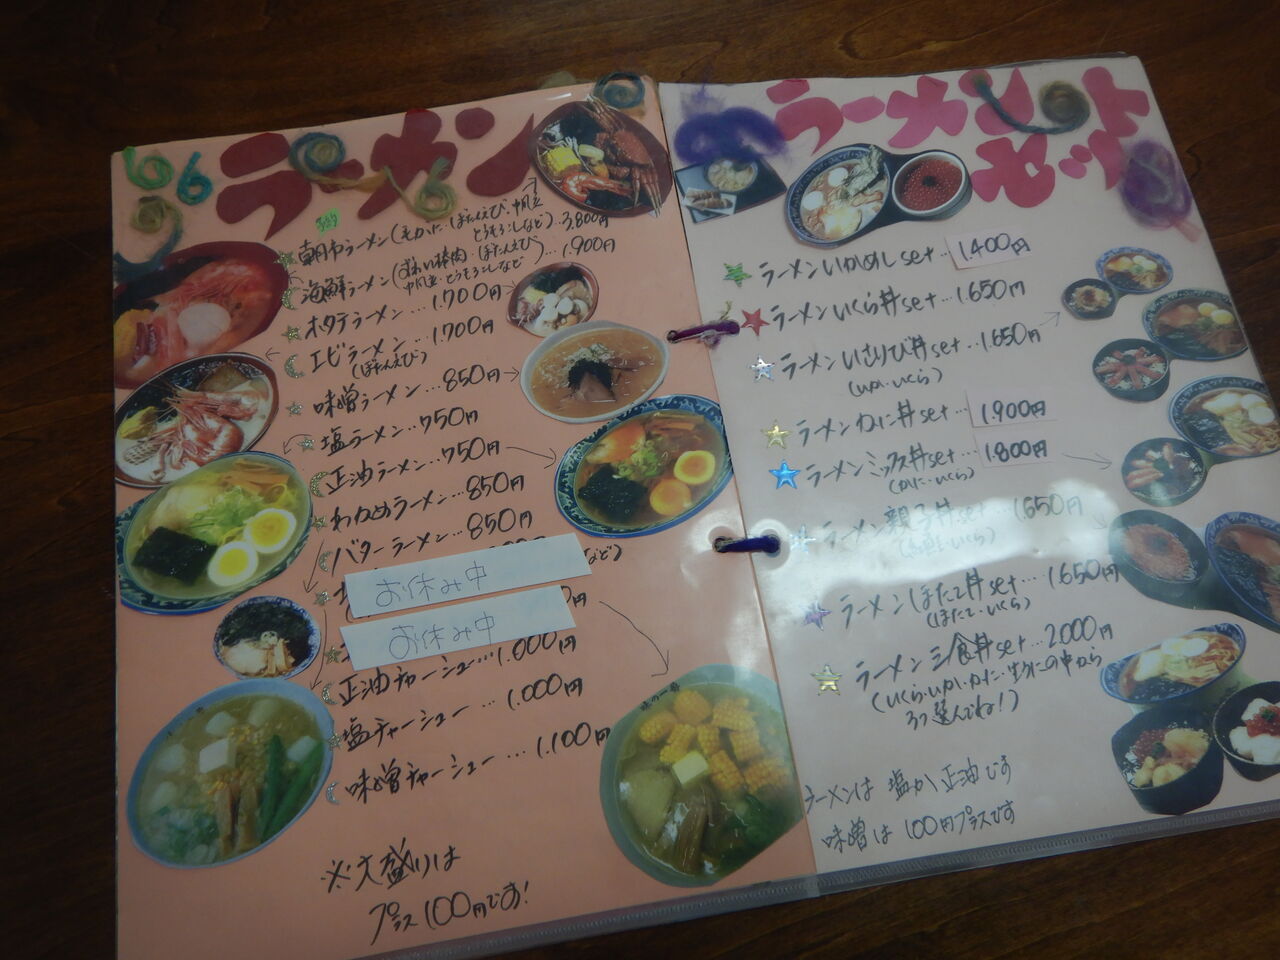 ラーメン
朝市ラーメン(毛がに・ぼたんえび・帆立
とうもろこしなど)…3.800円
海鮮ラーメン(ずわい棒肉・ぼたんえび
帆立・とうもろこしなど)…1.900円
ホタテラーメン…1.700円
エビラーメン…1.700円
(ぼたんえび)
味噌ラーメン…850円
塩ラーメン…750円
正油ラーメン…750円
わかめラーメン…850円
バターラーメン…850円
など)
お休み中
お休み中
正油チャーシュー…1.000円
塩チャーシュー…1.000円
味噌チャーシュー…1.100円
※大盛りは
プラス100円です!
ラーメン
セット
ラーメンいかめしset…1.400円
ラーメンいくら丼set…1.650円
ラーメンいさりび丼set…1.650円
(いか・いくら)
ラーメンかに丼set…1.900円
ラーメンミックス丼set…1.800円
(かに・いくら)
ラーメン親子丼set…1.650円
ラーメンほたて丼set…1.650円
(ほたて・いくら)
ラーメン三食丼set…2.000円
(いくら・いか・かに・生うにの中から
3つ選んでね!)
ラーメンは塩か正油です
味噌は100円プラスです